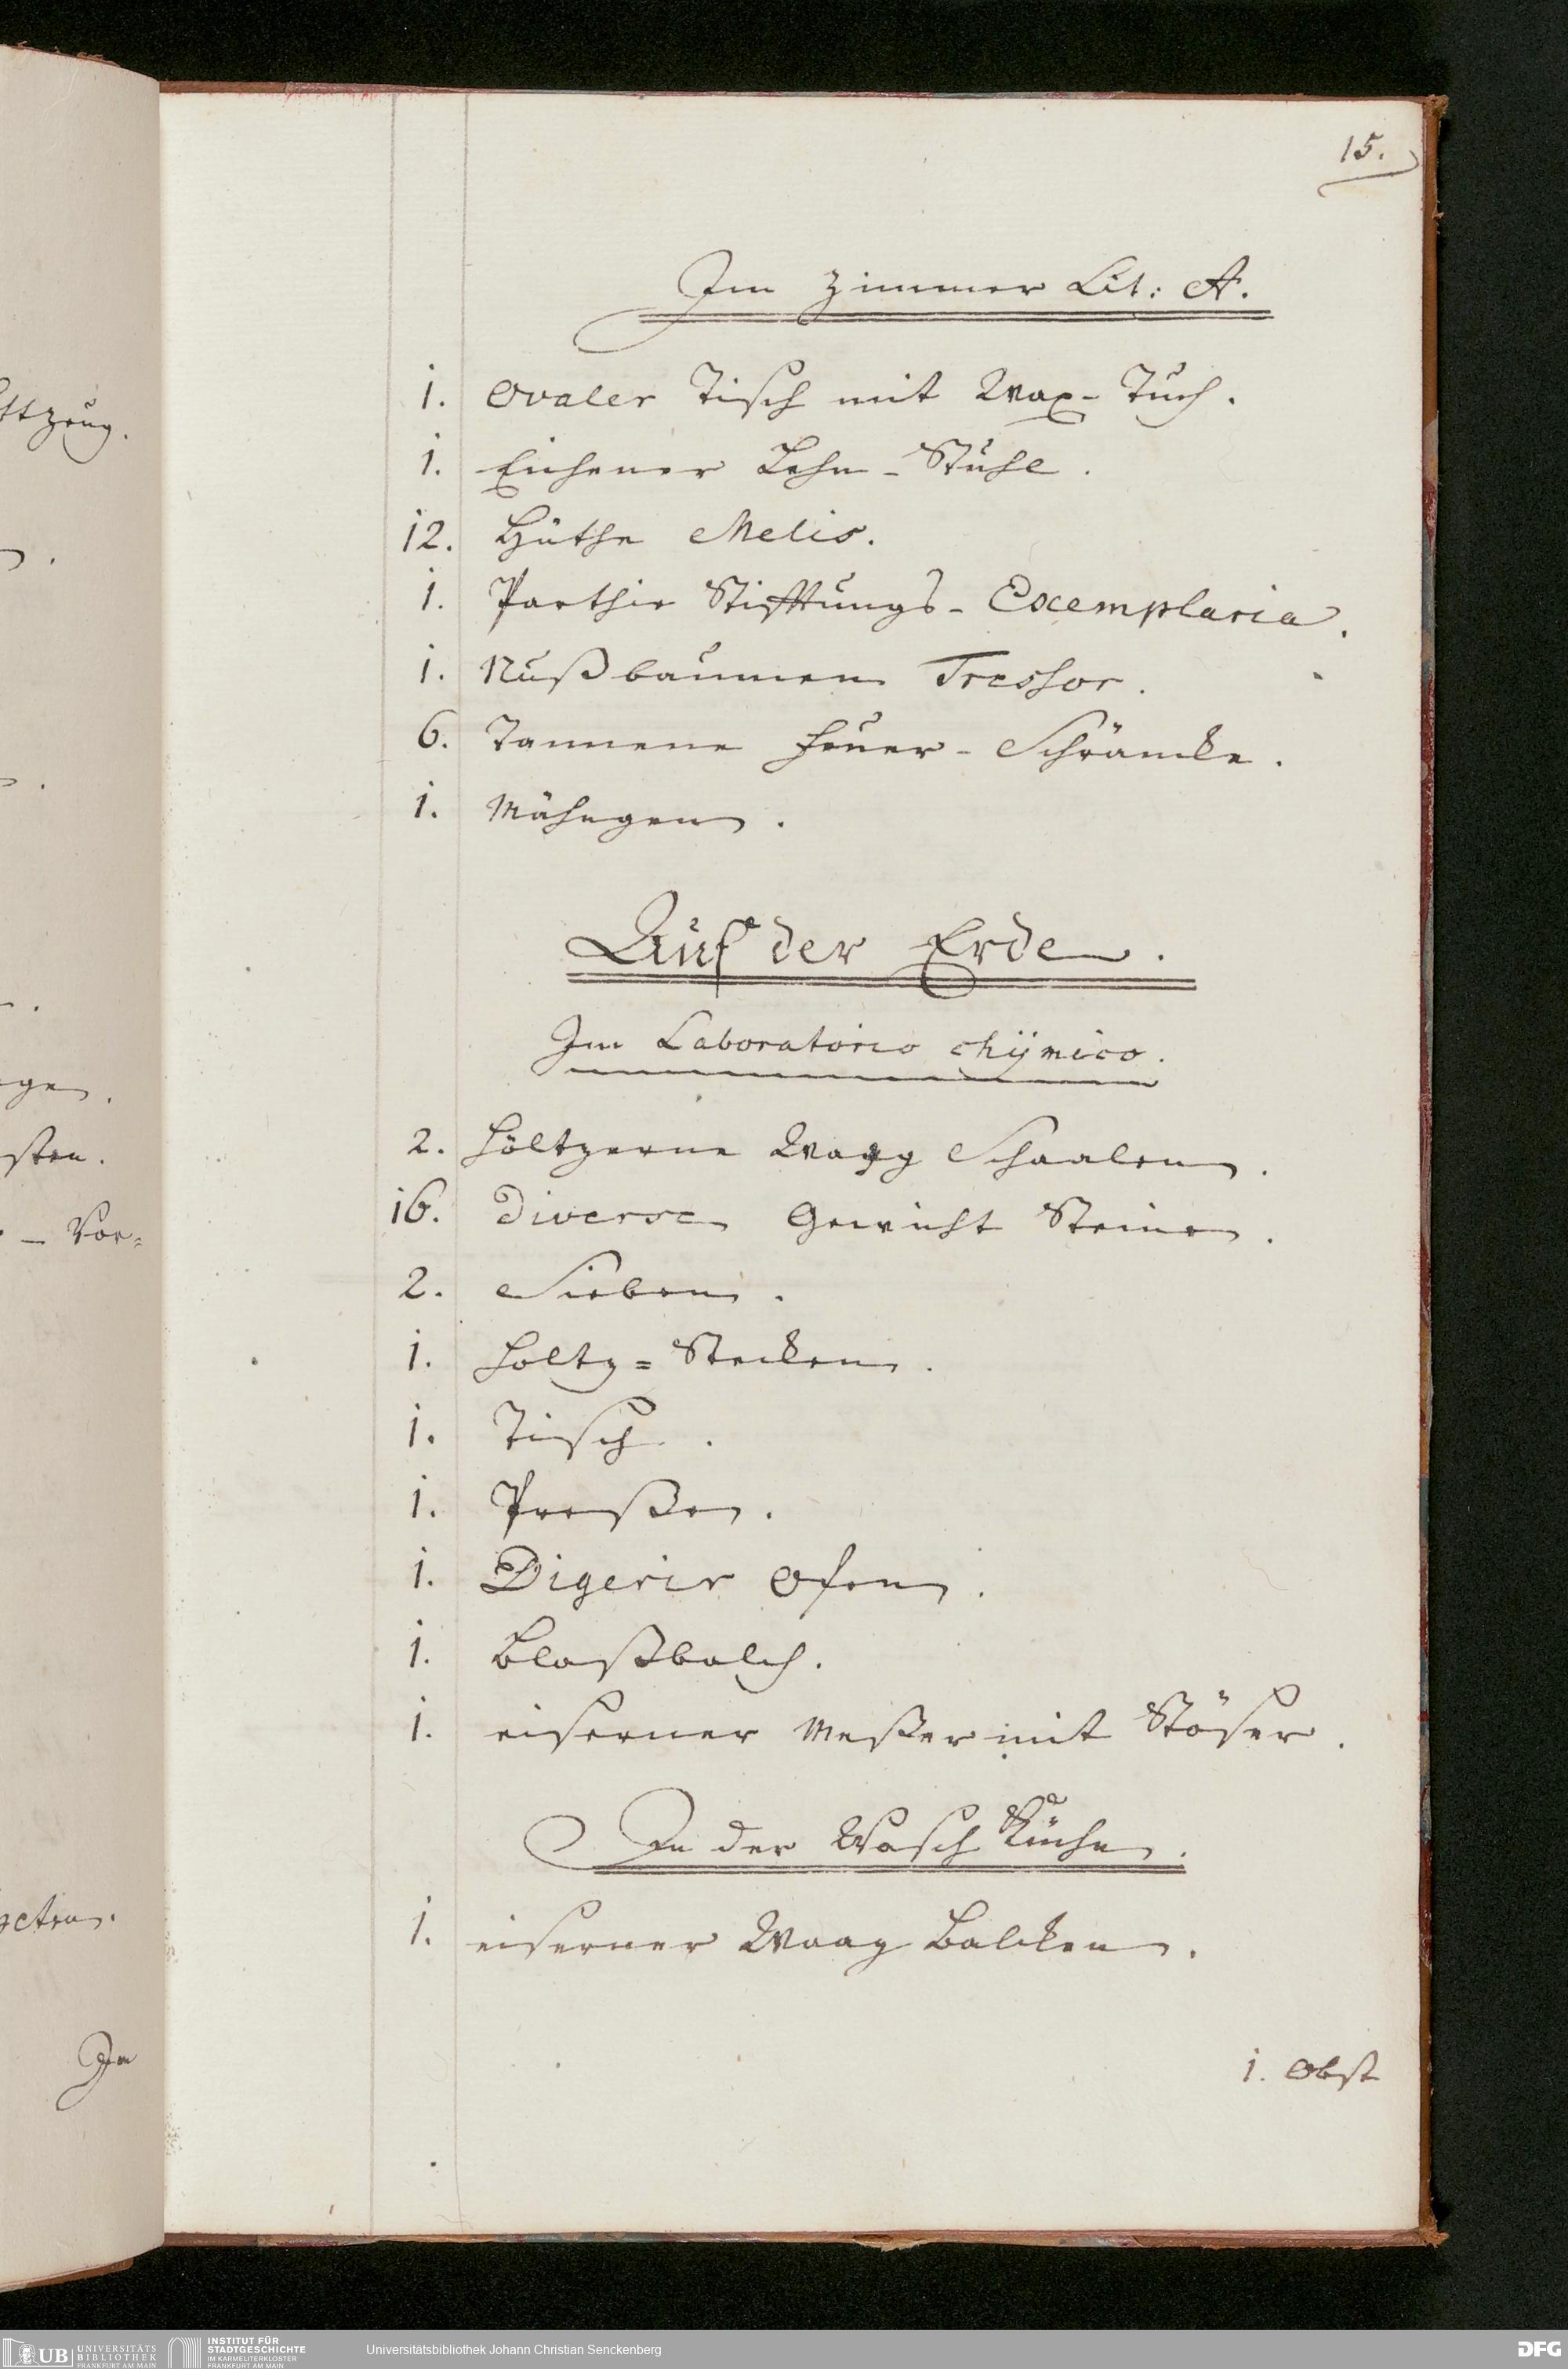 15.
Im Zimmer Lit: A.
1. Ovaler Tisch mit Wax-Tuch.
1. Eichener Lehn-Stuhl.
12. Hüthe Melis.
1. Parthie Stifftungs-Exemplaria.
1. Nußbaumen Tressor.
6. Tannene Feuer-Schräncke.
1. Mähngen.
Auf der Erden.
Im Laboratorio chÿmico.
2. Höltzerne Waag Schaalen.
16. Diversen Gewicht Steinen.
2. Sieben.
1. Holtz=Stecken.
1. Tisch.
1. Preßen.
1. Digerir Ofen.
1. Blaßbalch.
1. eiserner Meßer mit Stöser.
In der Wasch Küchen.
1. eiserner Waag Balcken.
1. Obst
ttzeug.
gen.
sten.
_ Vor=
Im
UB UNIVERSITÄTS BIBLIOTHEK FRANKFURT AM MAIN
INSTITUT FÜR STADTGESCHICHTE IM KARMELITERKLOSTER FRANKFURT AM MAIN
Universitätsbibliothek Johann Christian Senckenberg
DFG